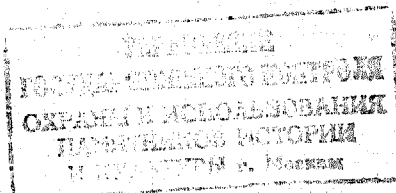 УПРАВЛЕНИЕ
ГОСУДАРСТВЕННОГО КОНТРОЛЯ
ОХРАНЫ И ИСПОЛЬЗОВАНИЯ
ПАМЯТНИКОВ ИСТОРИИ
И КУЛЬТУРЫ г. Москвы